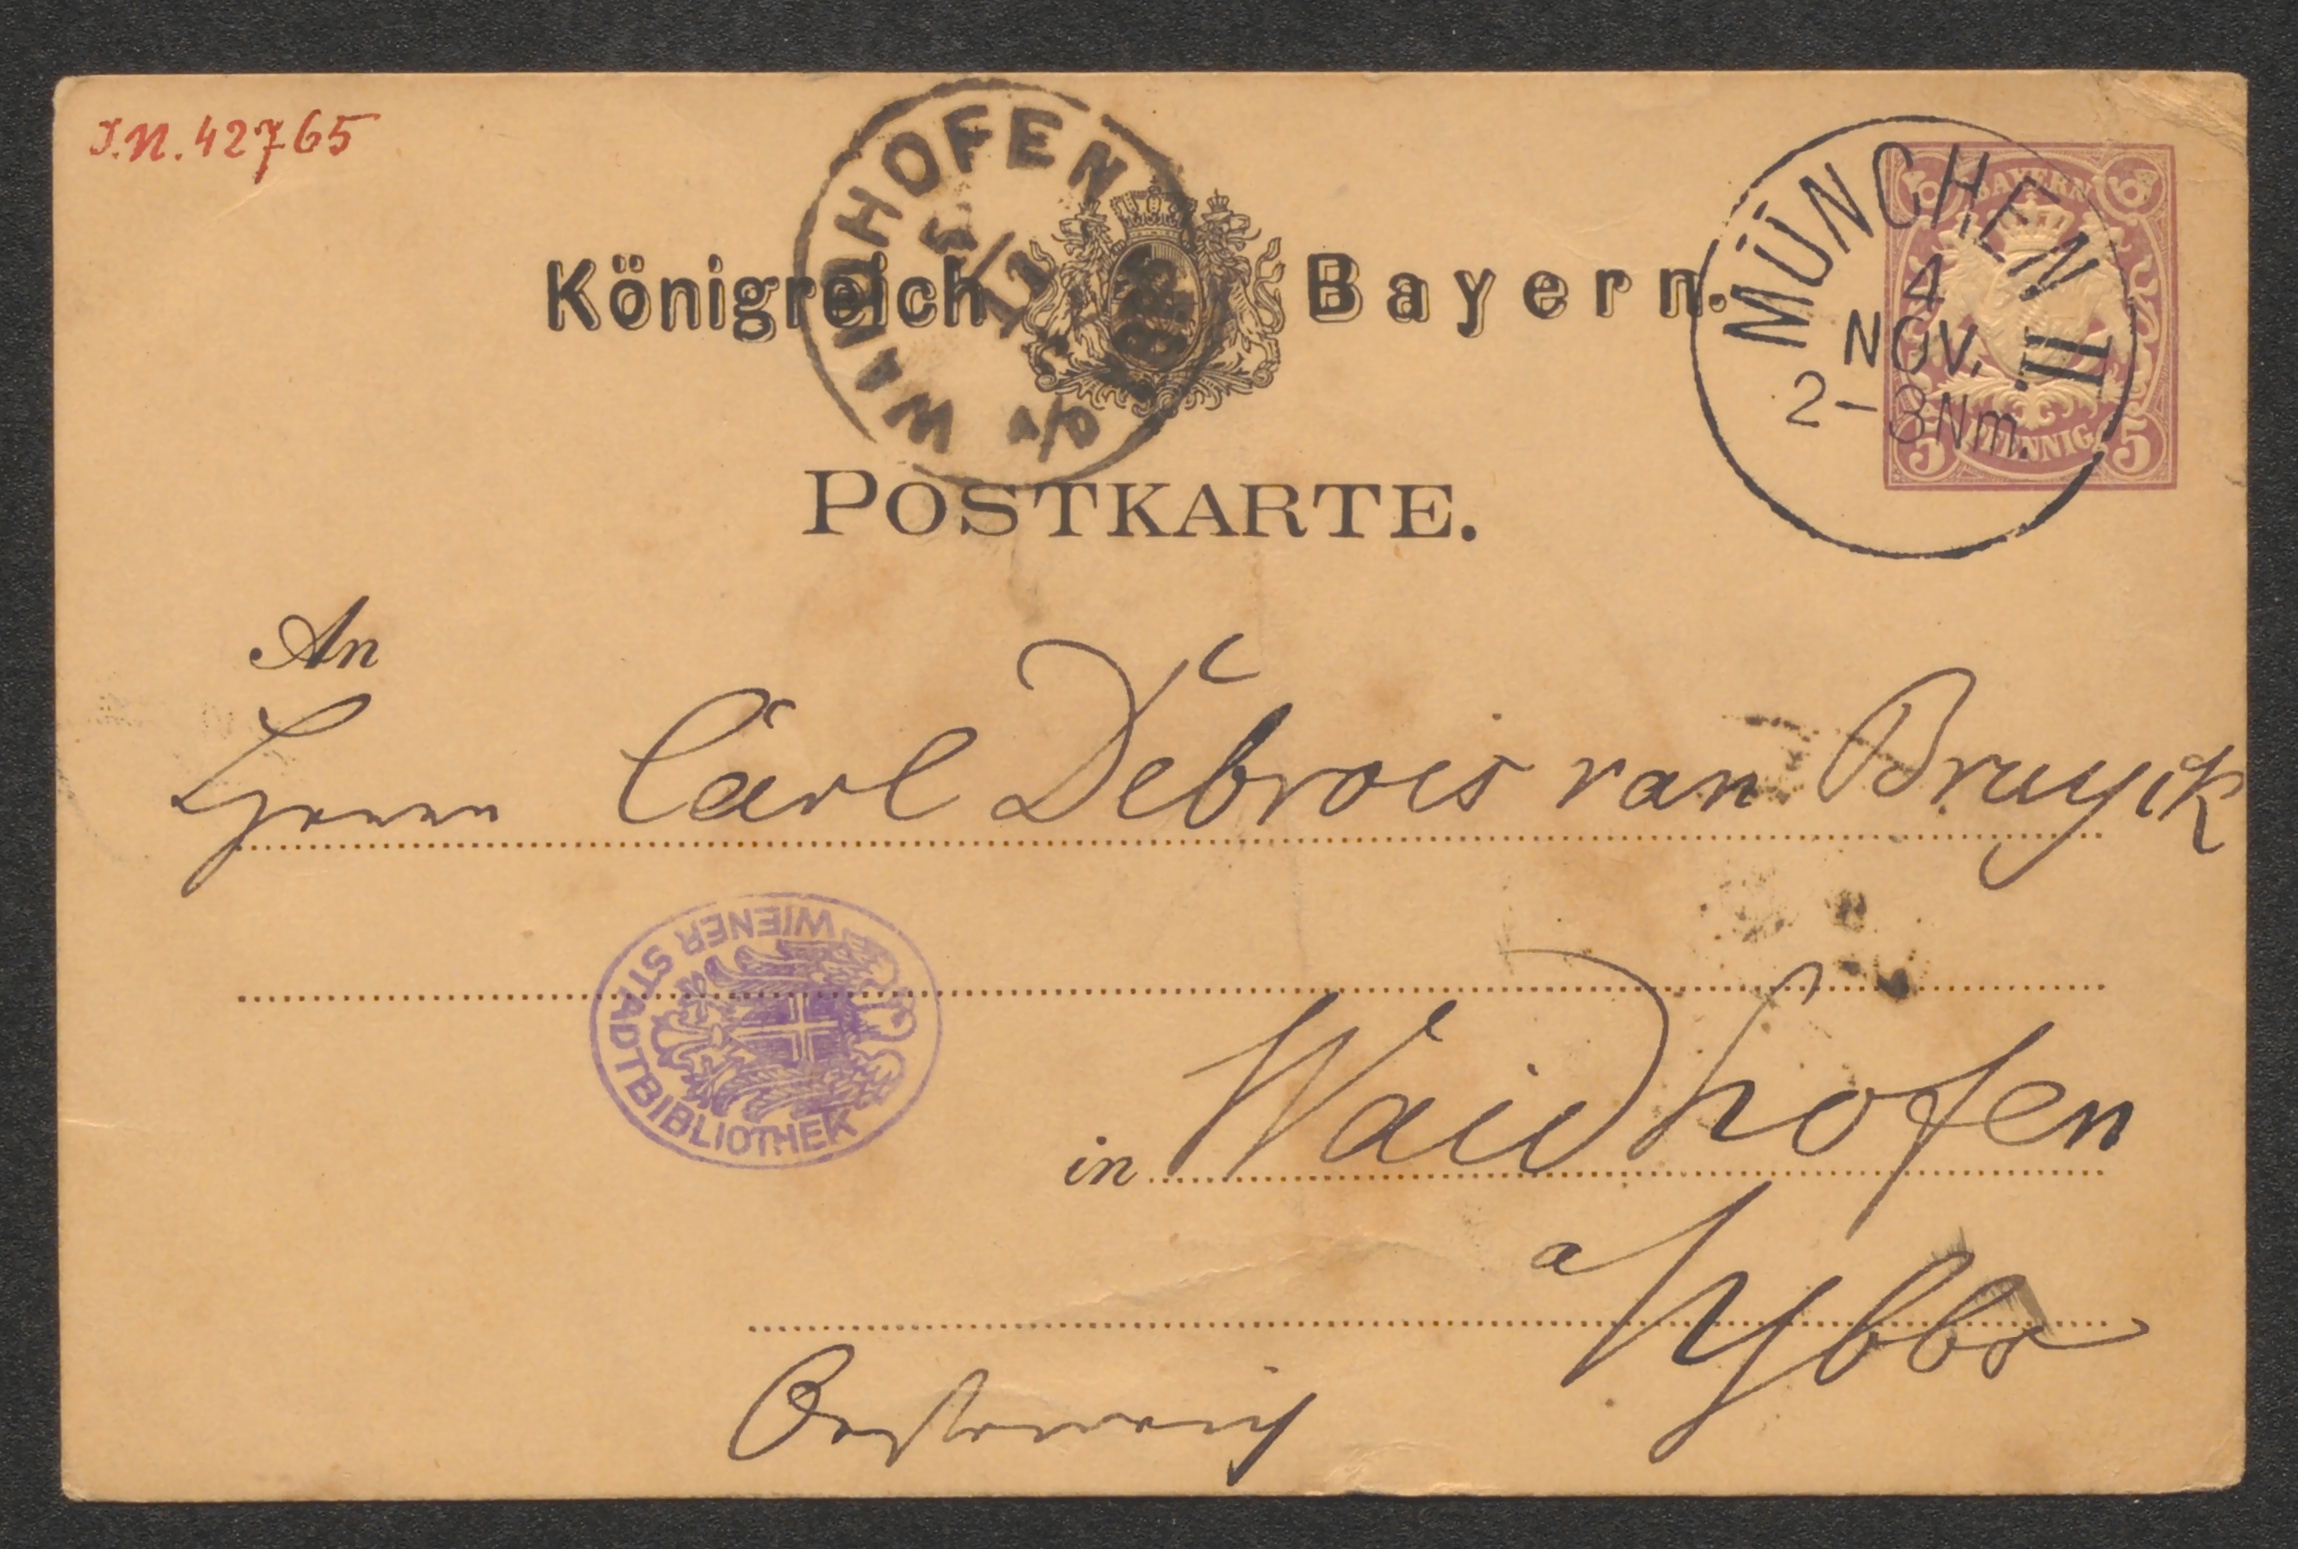 J.N. 42765
WAIDHOFEN
5/11
a/d YBBS
Königreich Bayern.
MÜNCHEN II
4
NOV.
2-3 Nm.
BAYERN
5 5
PFENNIG
5 5
POSTKARTE.
An
Herrn Carl Debrois van Bruyck
WIENER STADTBIBLIOTHEK
in Waidhofen
a/Ybbs
Oesterreich